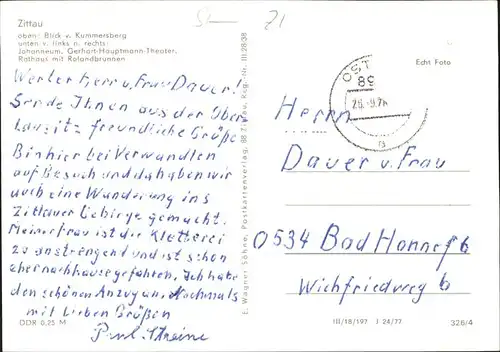 Zittau
oben: Blick v. Kummersberg
unten v. links n. rechts:
Johanneum, Gerhart-Hauptmann-Theater,
Rathaus mit Rolandbrunnen
Werter Herr u. Frau Dauer!
Sende Ihnen aus der Ober
Lausitz freundliche Grüße
Bin hier bei Verwandten
auf Besuch und da haben wir
auch eine Wanderung ins
Zittauer Gebirge gemacht.
Meiner Frau ist die Kletterei
zu anstrengend und ist schon
eher nachhause gefahren. Ich habe
den schönen Anzug an. Nochmals
mit lieben Grüßen
Paul
DDR 0,25 M
E. Wagner Söhne, Postkartenverlag, 88 Zittau, Reg.-Nr. III/28/38
Echt Foto
OST
89
Herrn
Dauer u. Frau
0534 Bad Honnef 6
Wichfriedweg 6
III/18/197 J 24/77
326/4